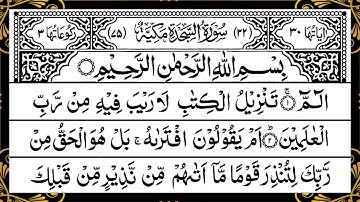 اٰیَاتُهَا ۳۰ (۳۲) سُوْرَةُ السَّجْدَةِ مَكِّیَّةٌ (۷۵) رُكُوْعَاتُهَا ۳
بِسْمِ اللّٰهِ الرَّحْمٰنِ الرَّحِیْمِ ۝
الٓمّٓ ۝۱ تَنْزِیْلُ الْكِتٰبِ لَا رَیْبَ فِیْهِ مِنْ رَّبِّ
الْعٰلَمِیْنَ ۝۲ اَمْ یَقُوْلُوْنَ افْتَرٰىهُ ۚ بَلْ هُوَ الْحَقُّ مِنْ
رَّبِّكَ لِتُنْذِرَ قَوْمًا مَّاۤ اَتٰىهُمْ مِّنْ نَّذِیْرٍ مِّنْ قَبْلِكَ